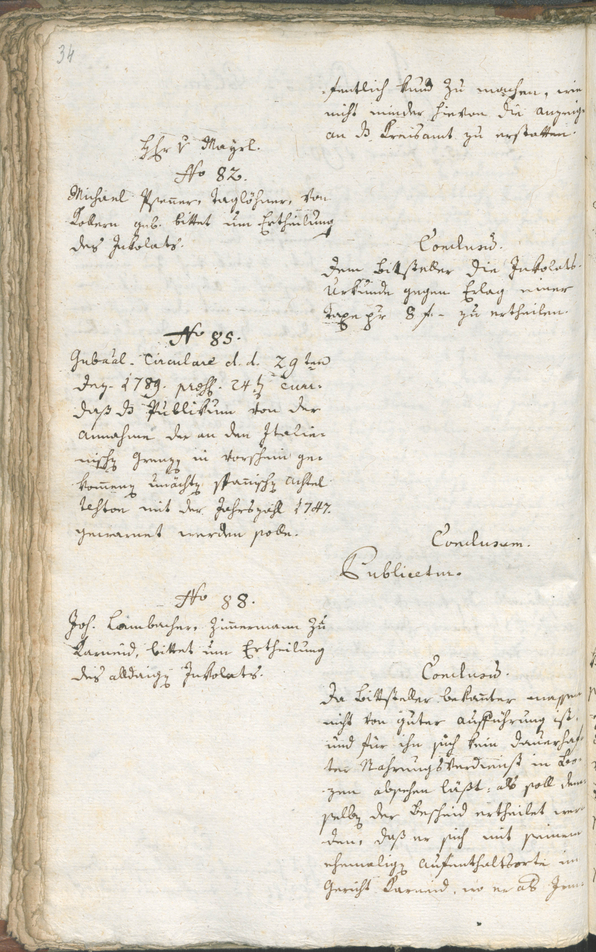 34
fentlich kund zu machen, wie
nicht minder hievon die anzeige
an ds Kreisamt zu erstatten.
H. v Mayrl.
No 82.
Michael Taglöhner, von
Kollern geb. bittet um Ertheilung
des Inkolats.
Conclusū.
Dem Bittsteller die Inkolats-
Urkunde gegen Erlag einer
Taxe pr 8 f. zu ertheilen.
No 85.
Gubāal. Circulare d. d. 29ten
Dez. 1789. praes. 24.
daß ds Publikum von der
Annahme der an den Italie-
nischen Grenzen in Vorschein ge-
kommenen unächten spanischen Achtel
mit der Jahrszahl 1747.
gewarnet werden solle.
Conclusum.
Publicetur.
No 88.
Joh. Lambacher, Zimmermann zu
Karneid, bittet um Ertheilung
des alldaigen Inkolats.
Conclusū.
Da Bittsteller bekannter massen
nicht von guter Aufführung ist,
und für ihn sich kein dauerhaf-
ter Nahrungsverdienst in Bo-
zen absehen läßt: als soll dem-
selben der Bescheid ertheilet wer-
den, daß er sich mit seinem
ehemaligen Aufenthaltsorte im
Gericht Karneid, wo er als